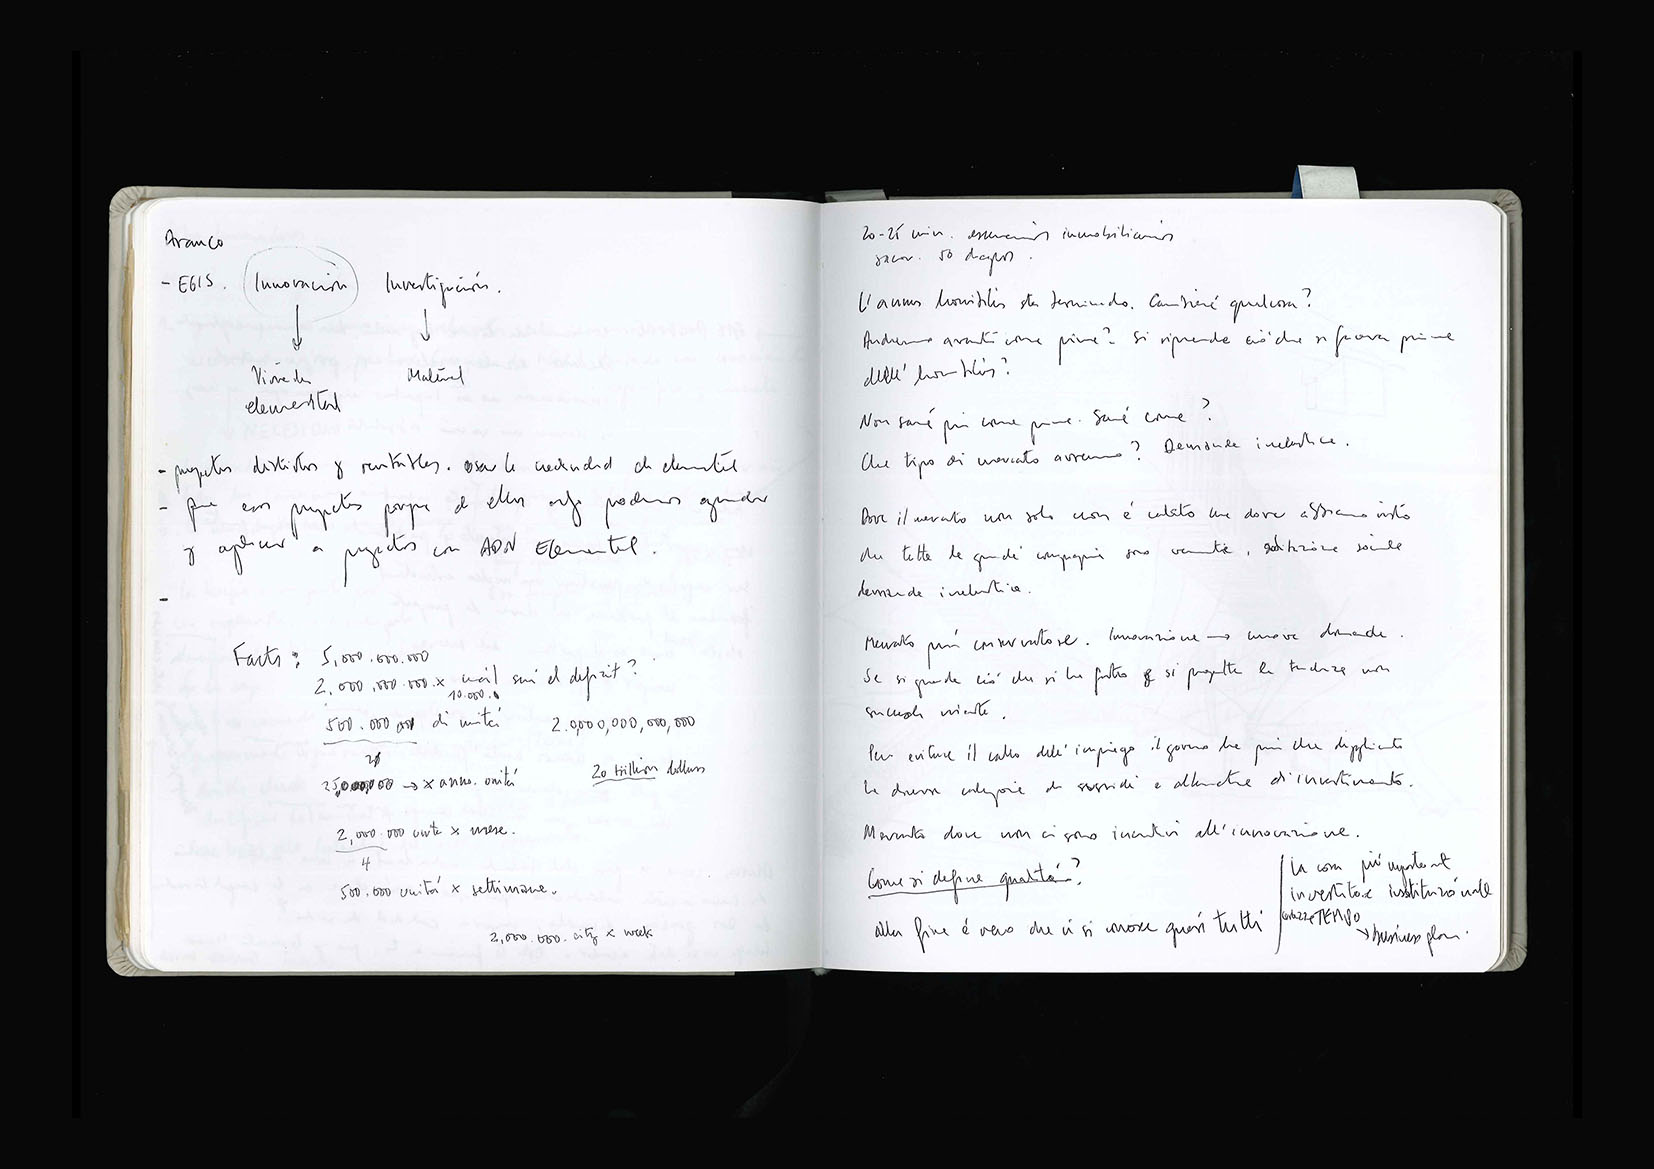 Arauco
- EGIS. Innovación Investigación.
Vivienda Material
elemental
- proyectos distintos y rentables. usar la necesidad de elemental
- que esos proyectos porque de ellos algo podemos aprender
y aplicar a proyectos con ADN Elemental.
-
Facts: 5,000.000.000
2,000.000.000. x sarà il deficit?
10.000.0
500.000.000 di unitá 2.0,000,000,000,000
20
25,000,000 → x anno. unitá 20 trillion dollars
2,000.000 unita x mese.
4
500.000 unitá x settimane.
2,000.000. city x week
20-25 min. escenarios inmobiliarios
50
L'annus horribilis sta terminando. Cambierá qualcosa?
Andremo avanti come prima? Si riprende ció che si faceva prima
dell' horribilis?
Non sará piú come prima. Sará come?
Che tipo di mercato avremo? Demanda inelastica.
Dove il mercato non solo non é calato ma dove abbiamo visto
che tutte le grandi compagnie sono venute, sociale
demanda inelastica.
Mercato piú conservatore. Innovazione → nuova domanda.
Se si guarda ció che si ha fatto e si progetta la tendenza non
succede niente.
Per evitare il calo dell'impiego il governo ha piú che duplicato
le diverse categorie di sussidi e alternative di investimento.
Mercato dove non ci sono incentivi all'innovazione.
Come si define qualitá?
alla fine é vero che ci si muove quasi tutti
la cosa piú importante
investitore istituzionale
TEMPO
→ business plan.